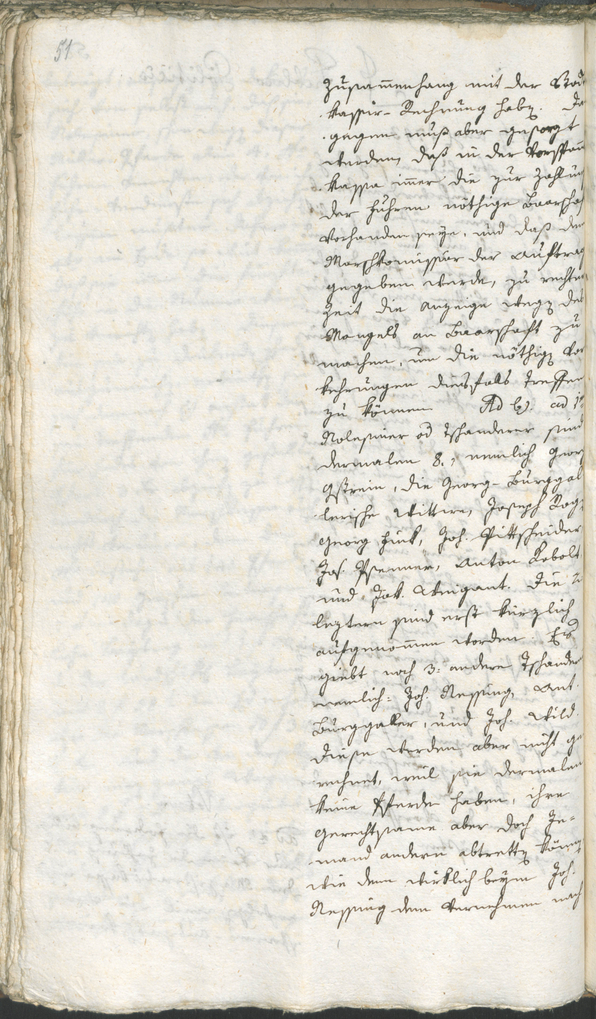 512
zusammenhang mit der Stadt
kassier-Rechnung habe. Da
gegen muß aber gesorgt
werden, daß in der Vorspan
kassa immer die zur Zahlun
der Fuhren nöthige Baarschaf
vorhanden seye, und daß dem
Marschkommissär der Auftrag
gegeben werde, zu rechter
Zeit die Anzeige wegen des
Mangels an Baarschaft zu
machen, um die nöthigen Vor
kehrungen diesfalls treffen
zu können. Ad b) ad 1
Rolesiner od Tschanderer sind
dermalen 8., nemlich Georg
Gstrein, die Georg-Burggal
lerische Wittwe, Joseph Rog
Georg Zink, Joh. Pittschieder
Jos. Psenner, Anton Kobolt
und Jak. Weingant. Die 2
leztern sind erst kürzlich
aufgenommen worden. Es
giebt noch 3. andere Tschander
nemlich: Joh. Nessing, Ant.
Burggaller, und Joh. Wild.
Diese werden aber nicht ge
rechnet, weil sie dermalen
keine Pferde haben, ihre
Gerechtsame aber doch Je-
mand andern abtretten könn
wie dem wirklich beym Joh.
Nessing dem Vernehmen nach